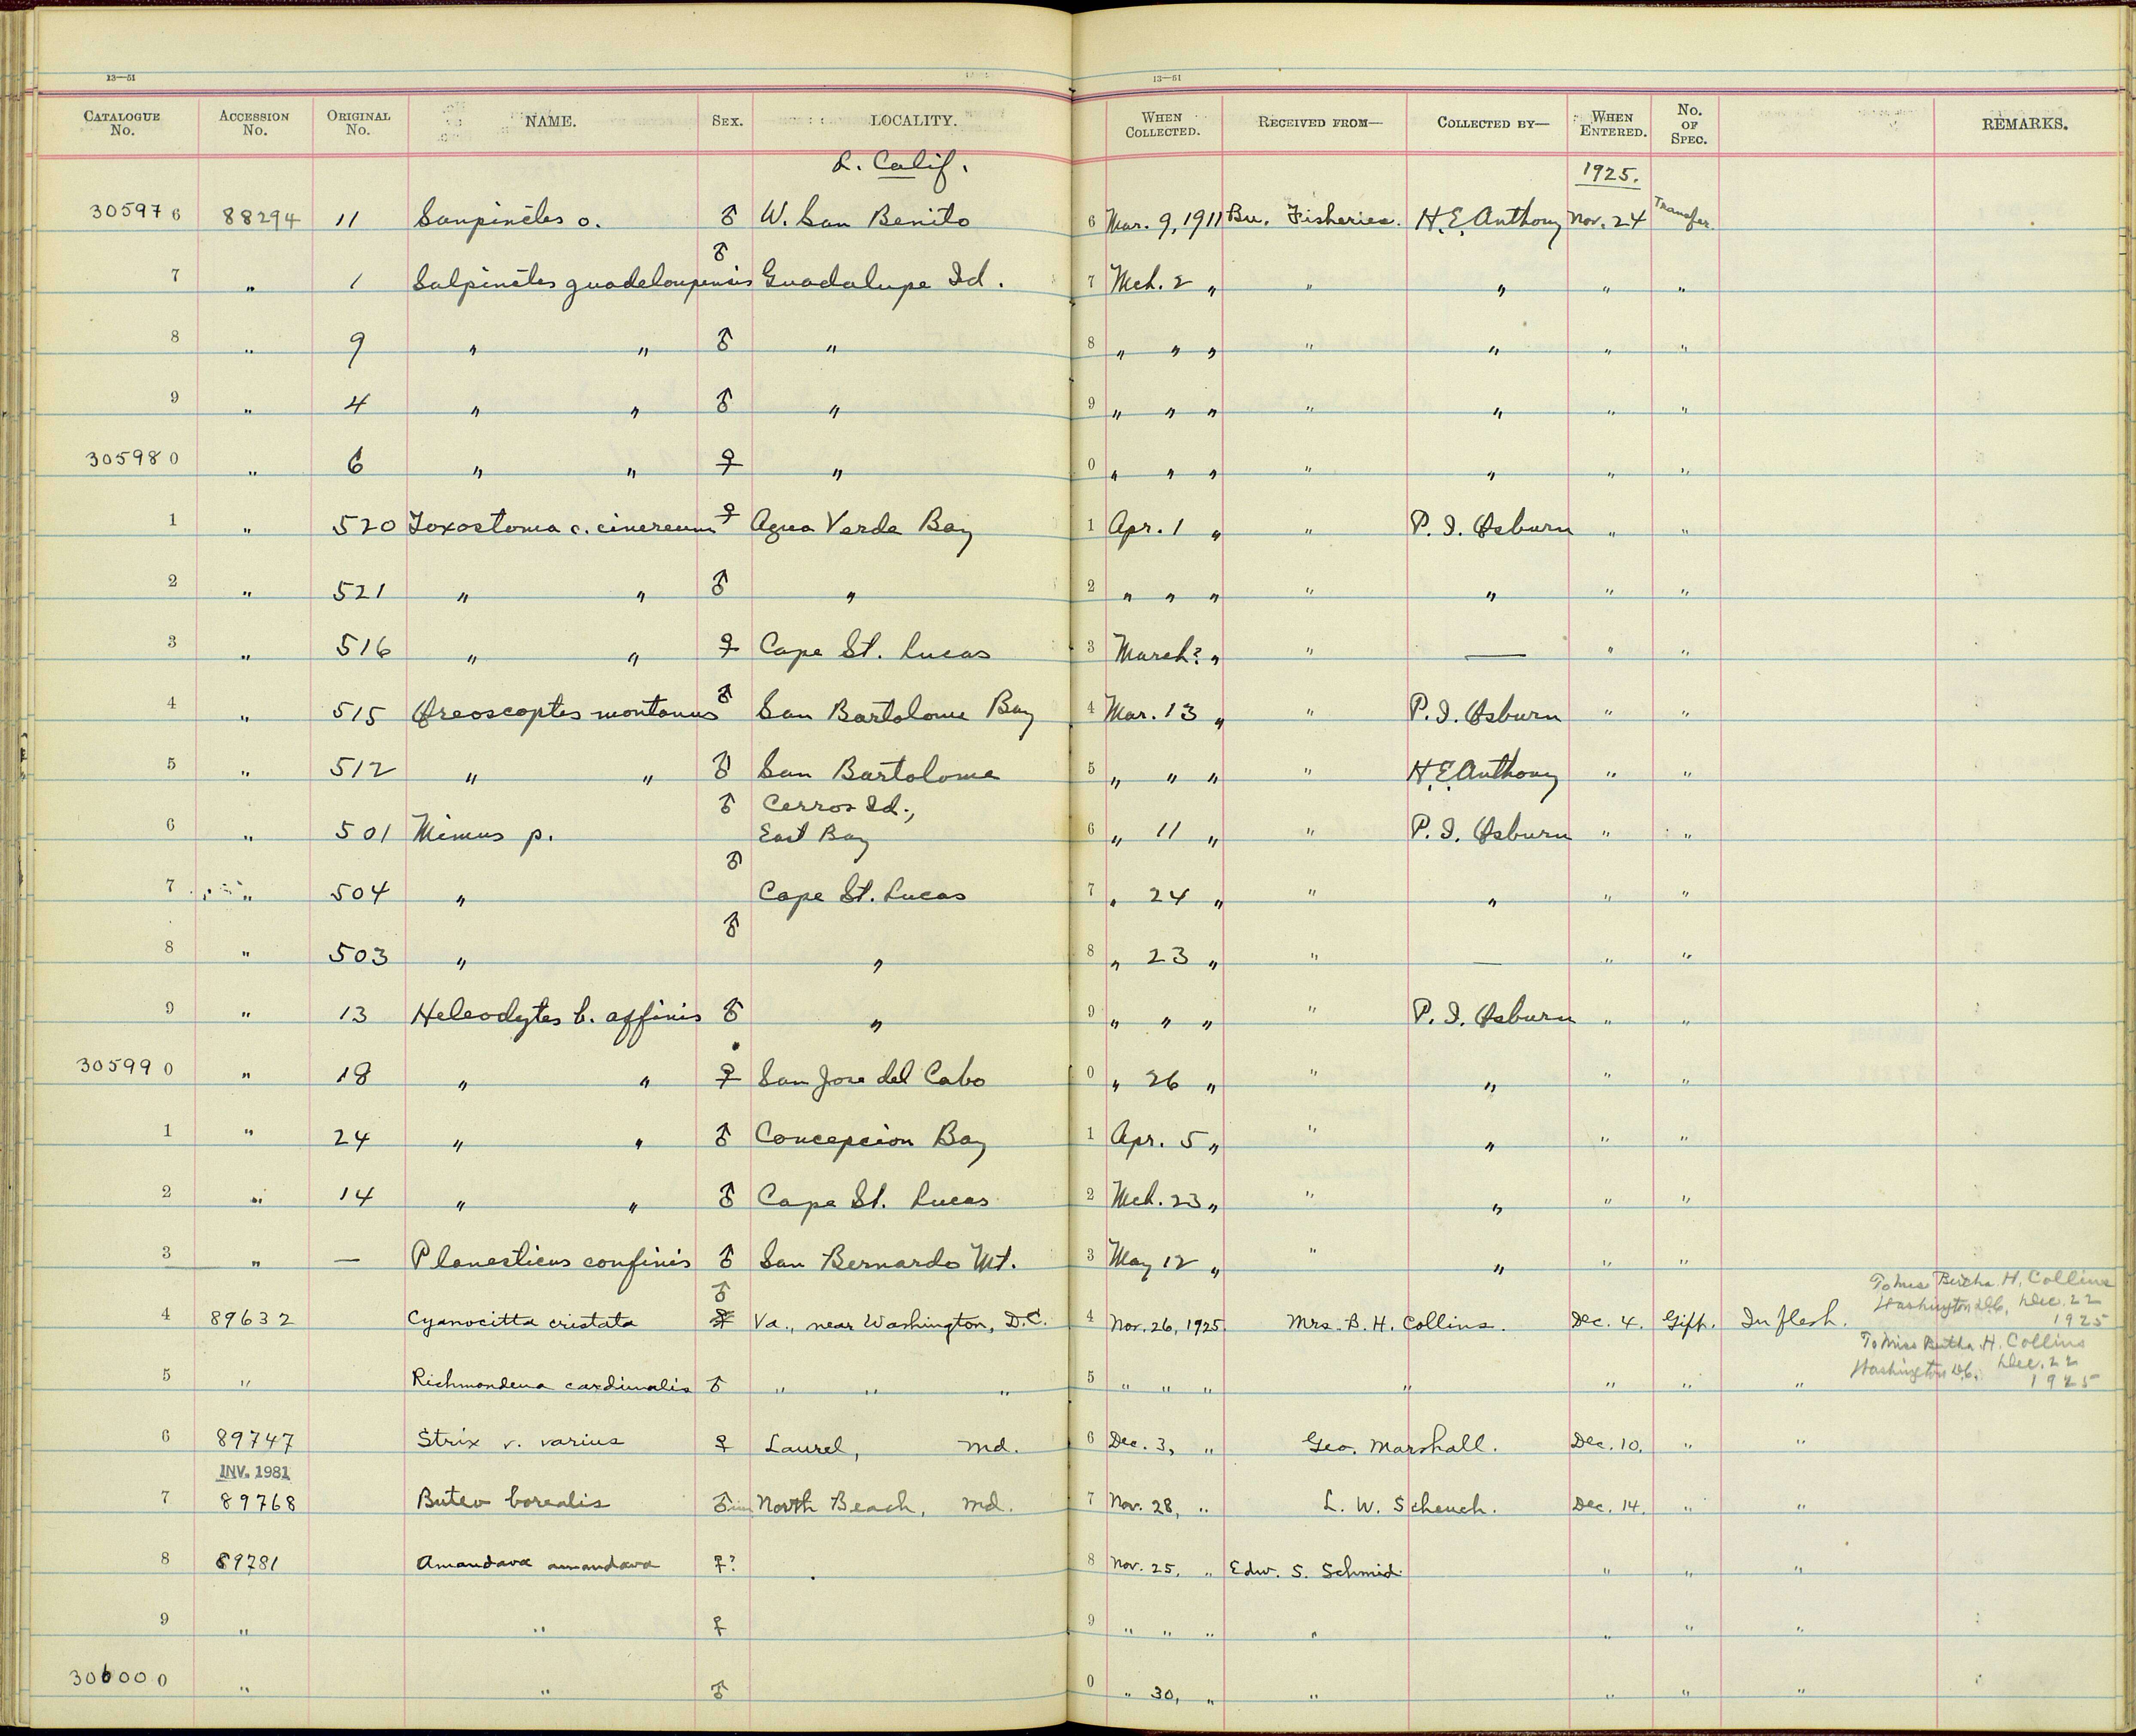 13—51 13—51
CATALOGUE No. ACCESSION No. ORIGINAL No. NAME. SEX. LOCALITY. WHEN COLLECTED. RECEIVED FROM— COLLECTED BY— WHEN ENTERED. No. OF SPEC. REMARKS.
L. Calif. 1925.
305976 88294 11 Salpinctes o. ♂ W. San Benito 6 Mar. 9, 1911 Bu. Fisheries. H.E. Anthony Nov. 24 Transfer.
7 " 1 Salpinctes guadeloupensis ♂ Guadalupe Id. 7 Mch. 2 " " " " "
8 " 9 " " ♂ " 8 " " " " " " "
9 " 4 " " ♂ " 9 " " " " " " "
305980 " 6 " " ♀ " 0 " " " " " " "
1 " 520 Toxostoma c. cinereum ♀ Agua Verde Bay 1 Apr. 1 " " P. I. Osburn " "
2 " 521 " " ♂ " 2 " " " " " " "
3 " 516 " " ♀ Cape St. Lucas 3 March? " " — " "
4 " 515 Oreoscoptes montanus ♂ San Bartolome Bay 4 Mar. 13 " " P. I. Osburn " "
5 " 512 " " ♂ San Bartolome 5 " " " " H.E. Anthony " "
♂ Cerros Id.,
6 " 501 Mimus p. East Bay 6 " 11 " " P. I. Osburn " "
7 " 504 " ♂ Cape St. Lucas 7 " 24 " " " " "
8 " 503 " ♂ " 8 " 23 " " — " "
9 " 13 Heleodytes b. affinis ♂ " 9 " " " " P. I. Osburn " "
305990 " 18 " " ♀ San Jose del Cabo 0 " 26 " " " " "
1 " 24 " " ♂ Concepcion Bay 1 Apr. 5 " " " " "
2 " 14 " " ♂ Cape St. Lucas 2 Mch. 23 " " " " "
3 " — Planesticus confinis ♂ San Bernardo Mt. 3 May 12 " " " " "
♂ To Miss Bertha H. Collins
4 89632 Cyanocitta cristata Va., near Washington, D.C. 4 Nov. 26, 1925 Mrs. B. H. Collins. Dec. 4. Gift. In flesh. Washington D.C., Dec. 22 1925
To Miss Bertha H. Collins
5 " Richmondena cardinalis ♂ " " " 5 " " " " " " " Washington D.C., Dec. 22 1925
6 89747 Strix v. varius ♀ Laurel, Md. 6 Dec. 3, " Geo. Marshall. Dec. 10. " "
INV. 1981
7 89768 Buteo borealis ♂ im North Beach, Md. 7 Nov. 28, " L. W. Scheuch. Dec. 14. " "
8 89781 Amandava amandava ♀? 8 Nov. 25, " Edw. S. Schmid. " " "
9 " " ♀ 9 " " " " " " "
306000 " " ♂ 0 " 30, " " " " "